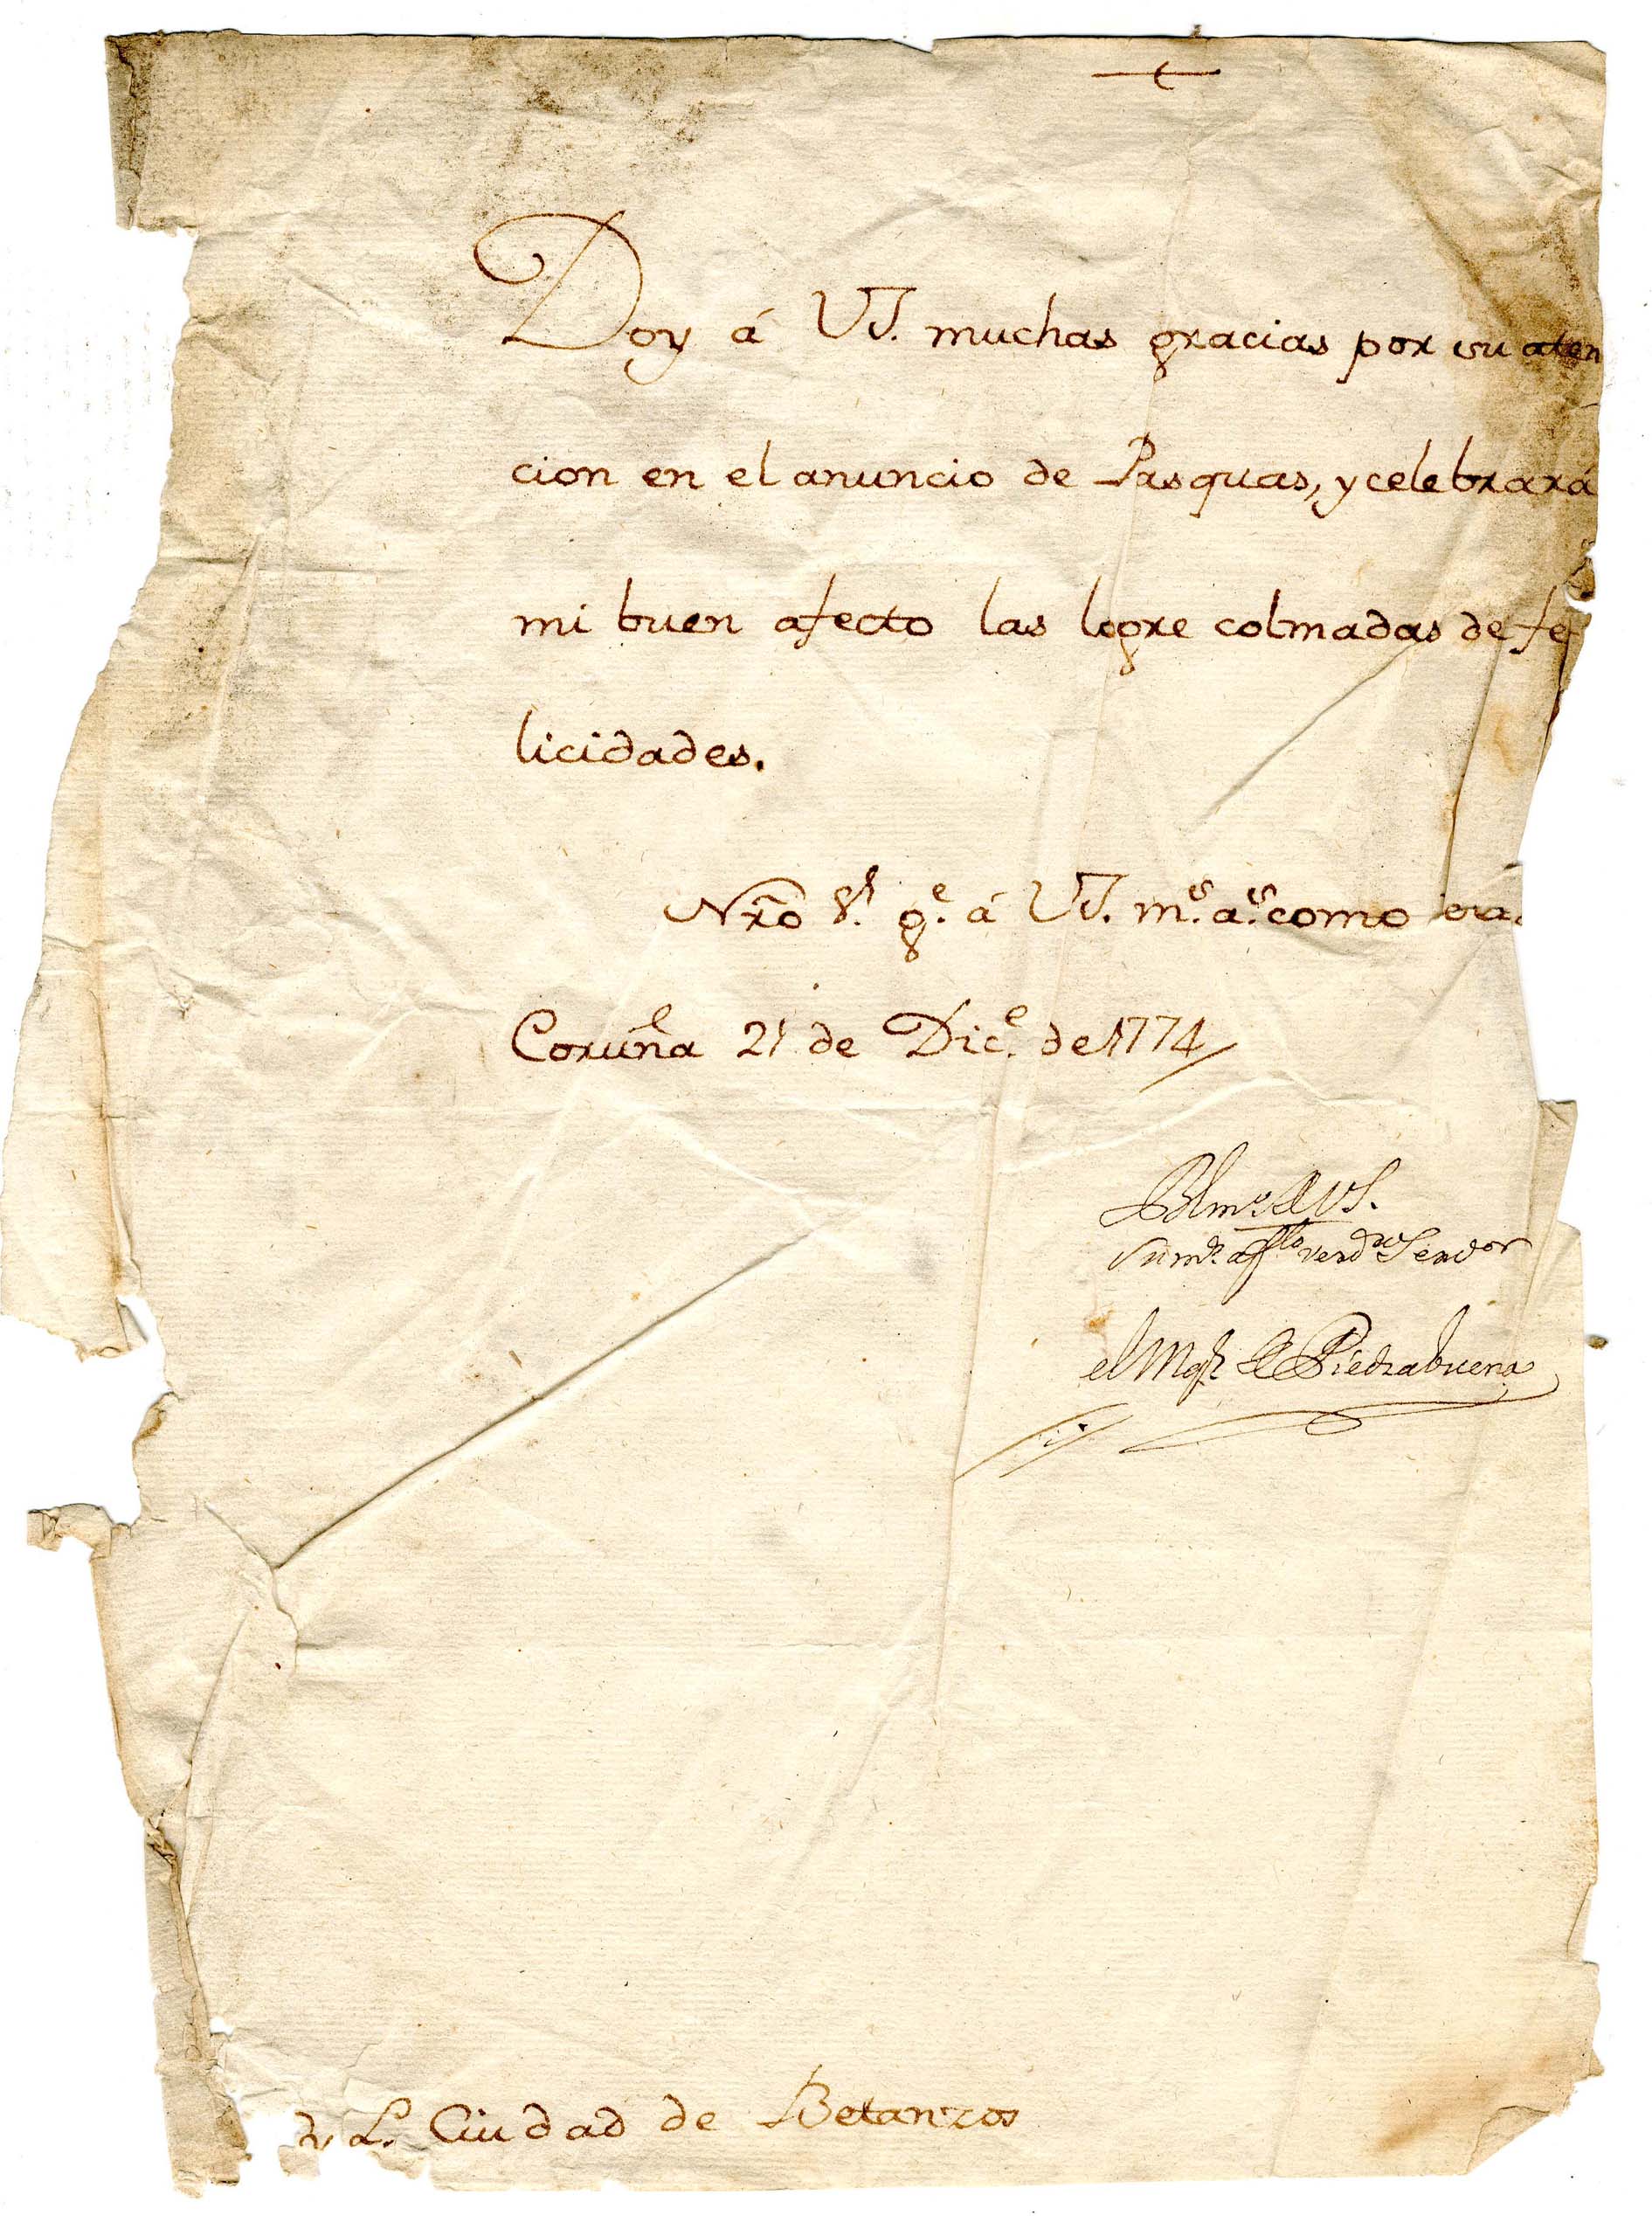 Doy á VS. muchas gracias por su aten
cion en el anuncio de Pasquas, y celebrará
mi buen afecto las logre colmadas de fe
licidades.
Nr̃o Sr. ge. á VS. ms. as. como
Coruña 21 de Dice. de 1774
BLmo. de VS.
su mr. affto verdro Servor
el Mqs. de Piedrabuena
Ciudad de Betanzos